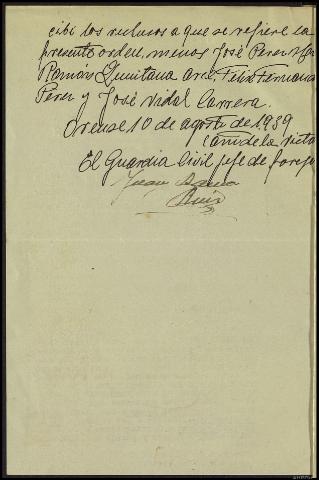 cibí los reclusos a que se refiere la
presente orden, menos José Perez
Ramón Quintana Arce, Felix Fernand
Perez y José Vidal Carrera.
Orense 10 de agosto de 1939
Año de la Victo
El Guardia Civil jefe de
Juan
Ruiz